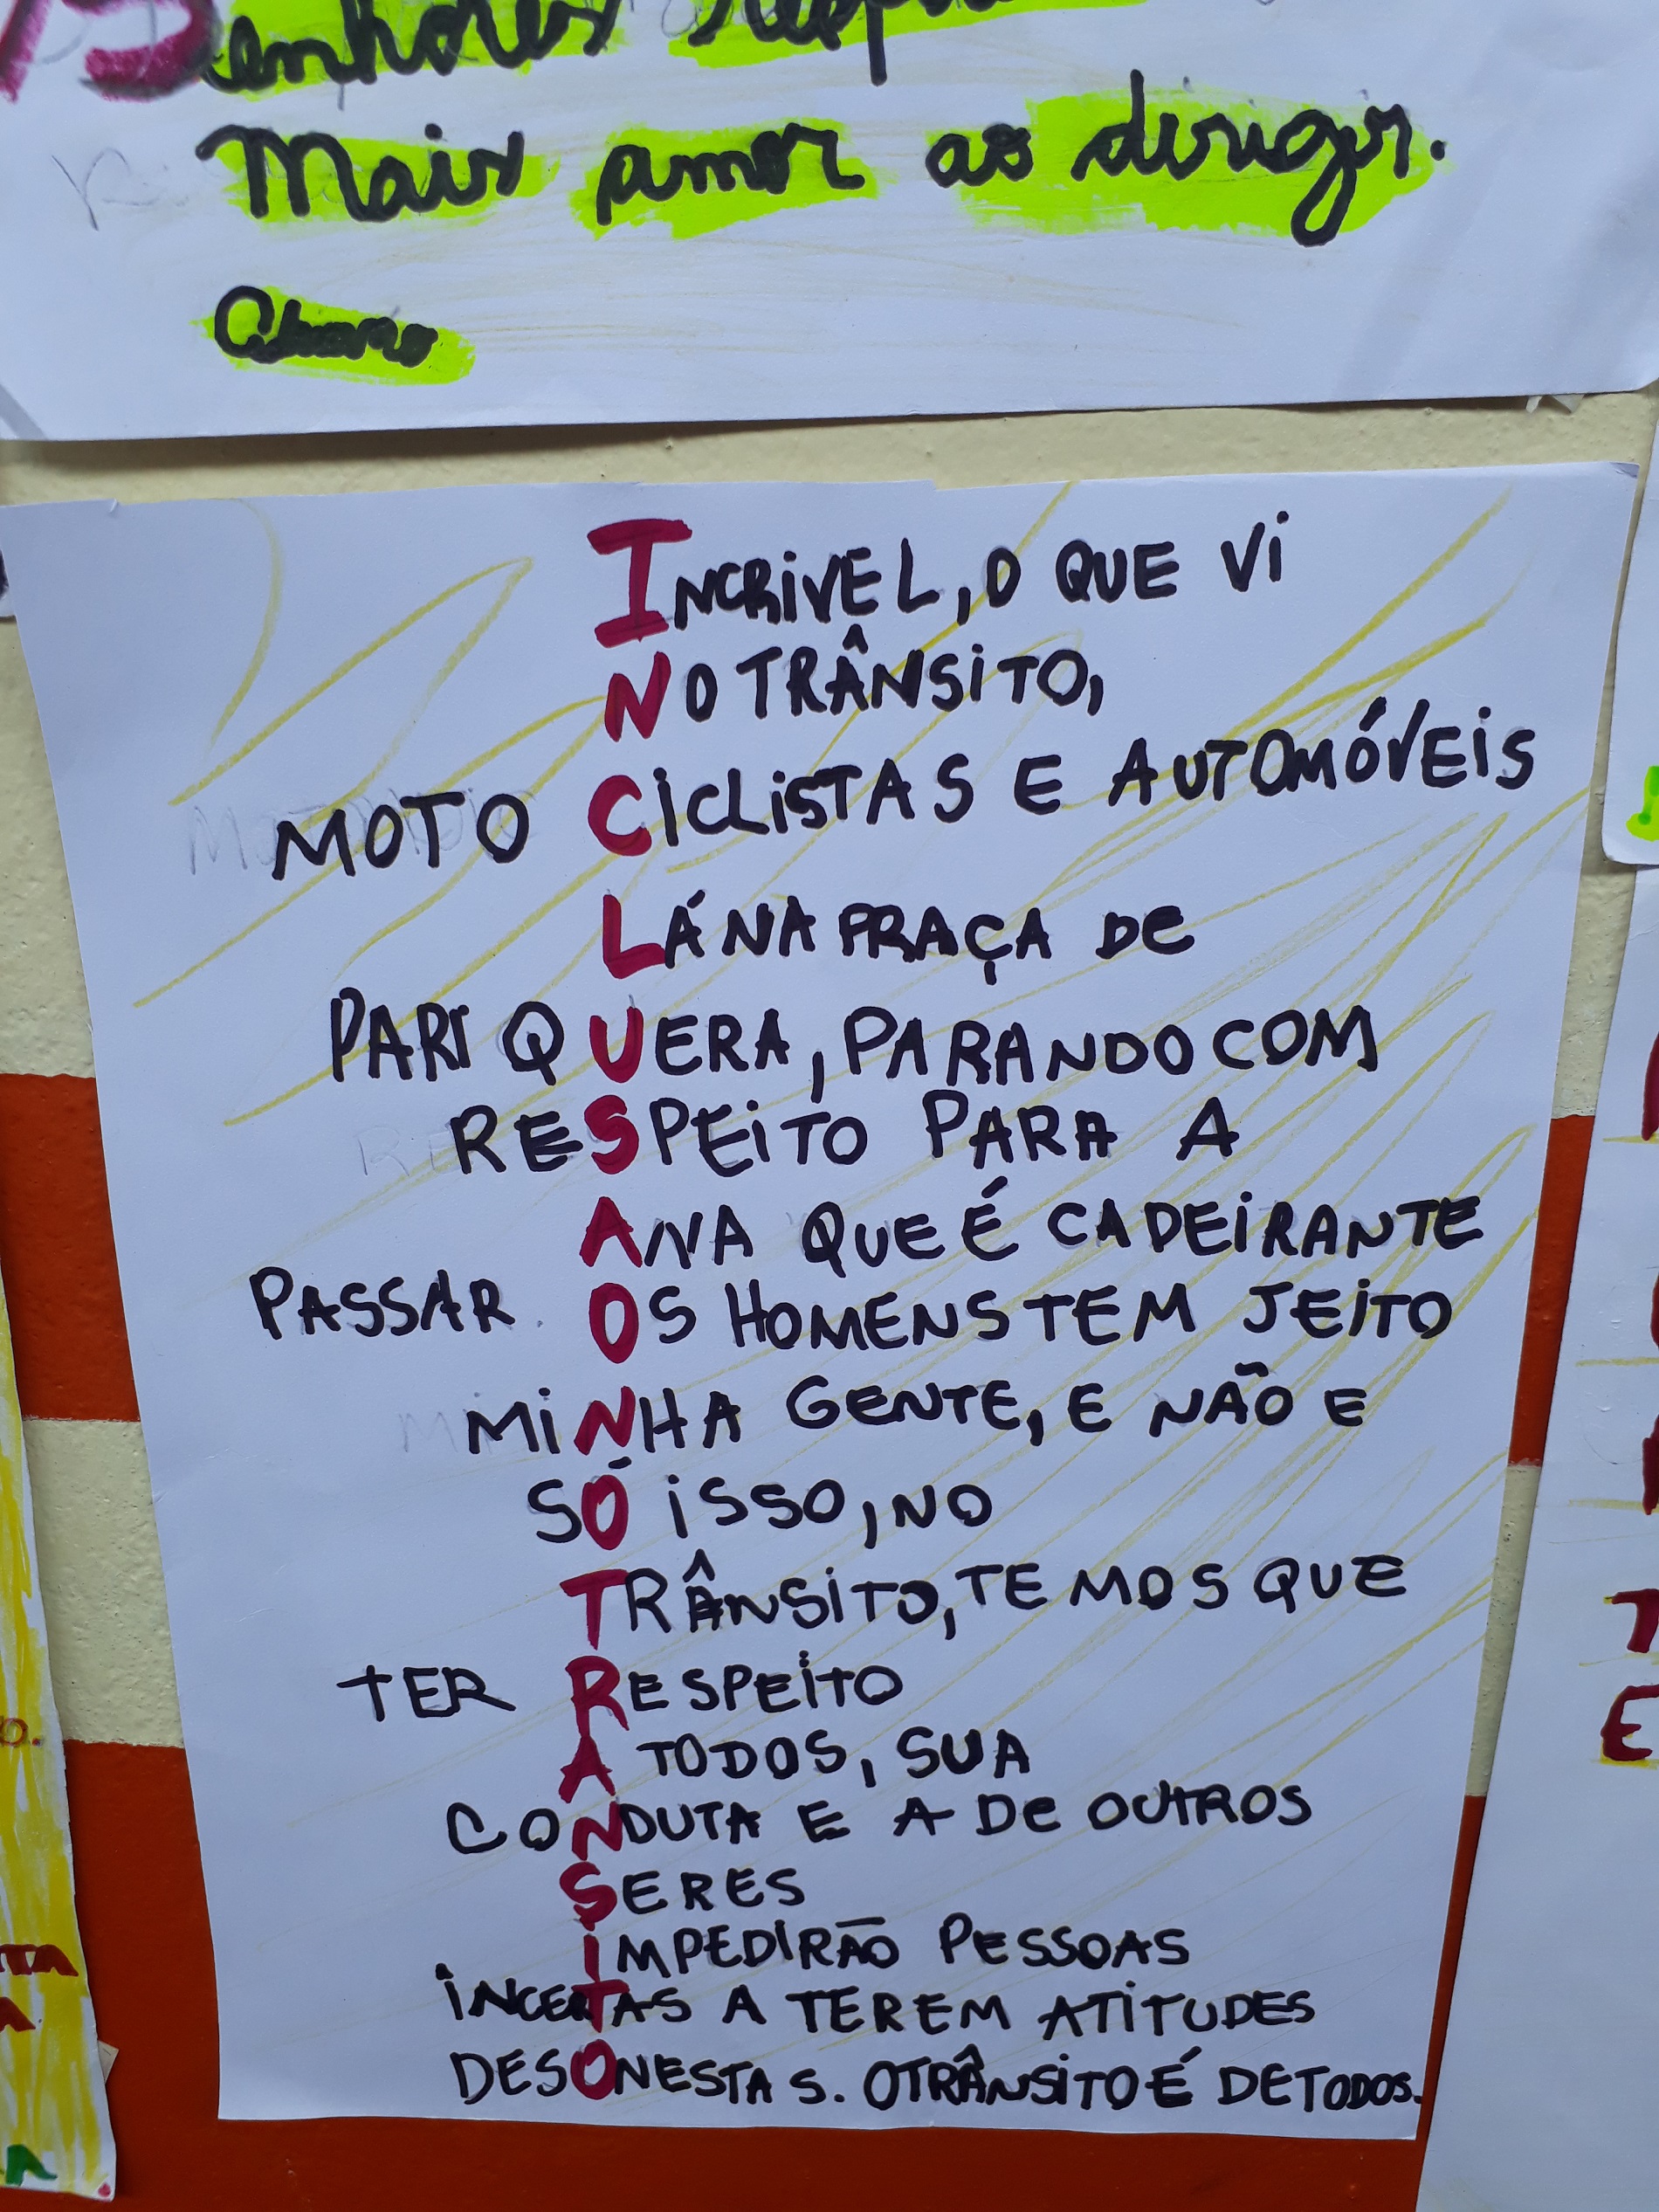 Mais amor ao dirigir.
INCRIVEL, O QUE VI
NO TRÂNSITO,
MOTO CICLISTAS E AUTOMÓVEIS
LÁ NA PRAÇA DE
PARIQUERA, PARANDO COM
RESPEITO PARA A
ANA QUE É CADEIRANTE
PASSAR. OS HOMENS TEM JEITO
MINHA GENTE, E NÃO E
SÓ ISSO, NO
TRÂNSITO, TEMOS QUE
TER RESPEITO
A TODOS, SUA
CONDUTA E A DE OUTROS
SERES
IMPEDIRÃO PESSOAS
INCERTAS A TEREM ATITUDES
DESONESTAS. O TRÂNSITO É DE TODOS.